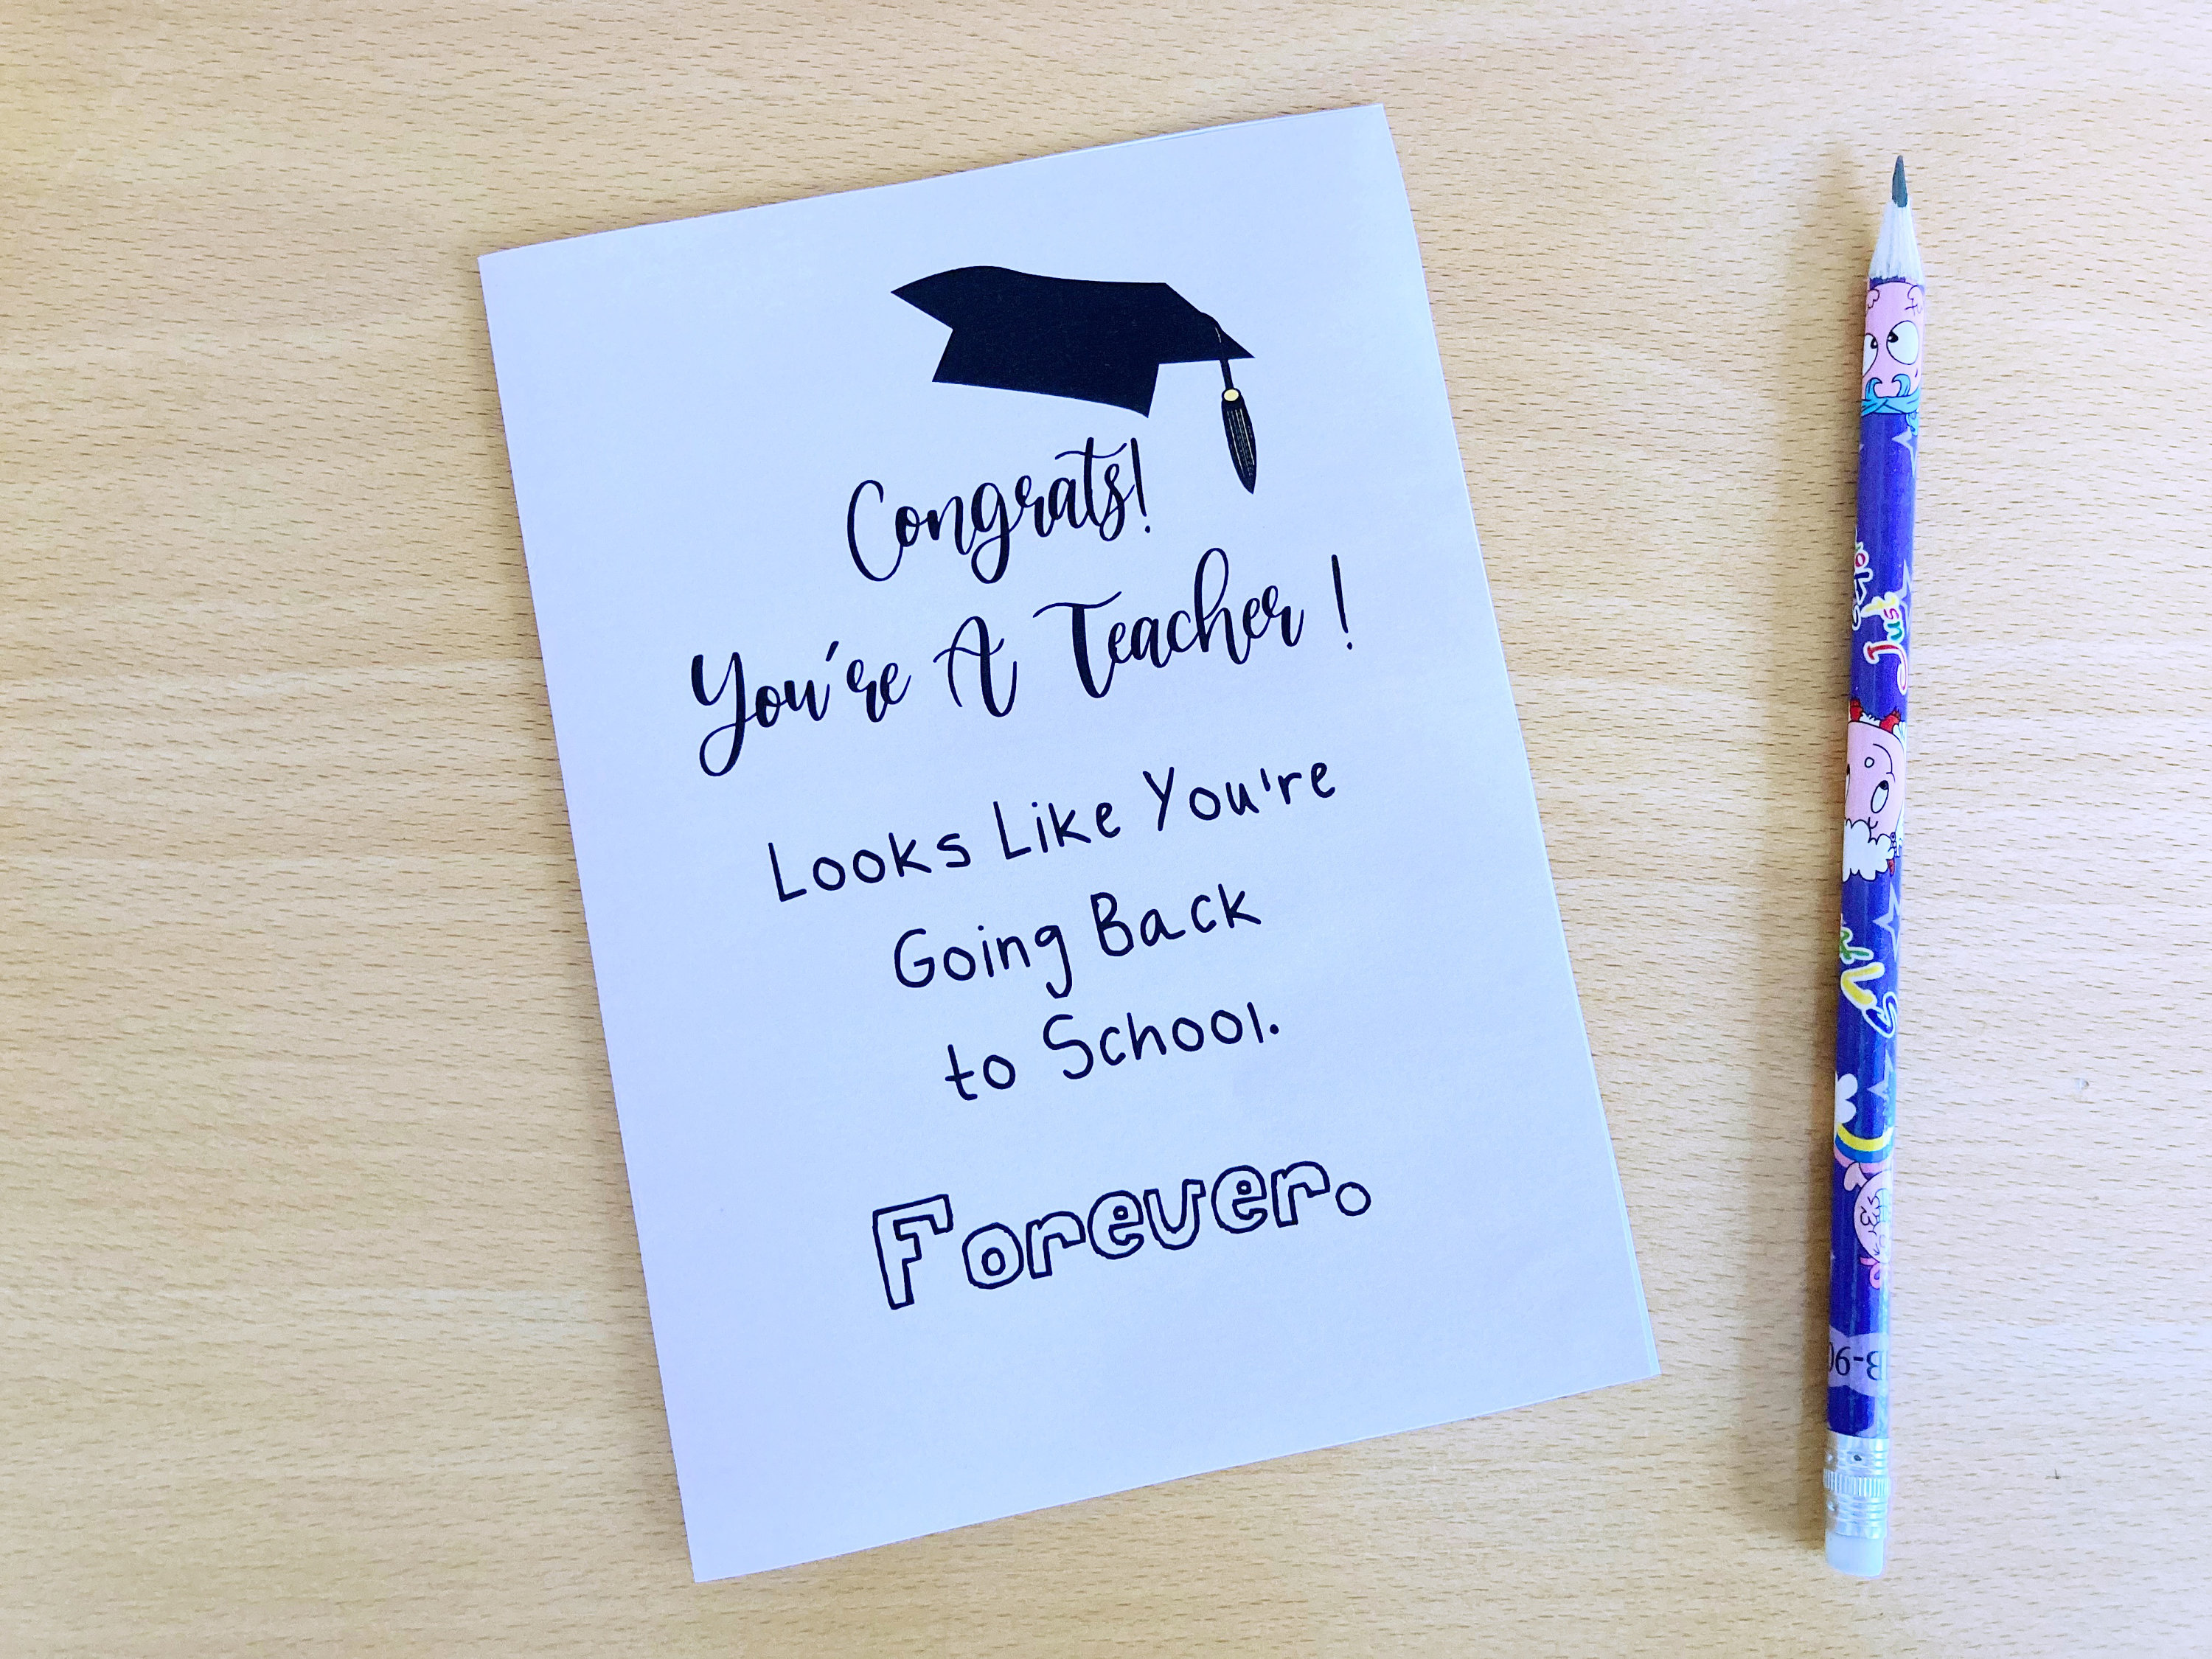 Congrats!
You're A Teacher !
Looks Like You're
Going Back
to School.
Forever.
Just